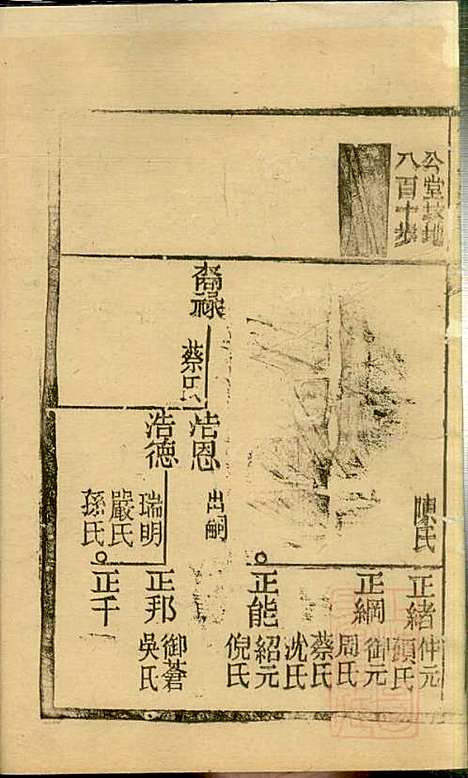 公堂基地
八百十步
裔祿
蔡氏
浩恩
出嗣
浩德
瑞明
嚴氏
孫氏
陳氏
正緒
仲元
顧氏
正綱
御元
周氏
蔡氏
沈氏
正能
紹元
倪氏
正邦
御蒼
吳氏
正千